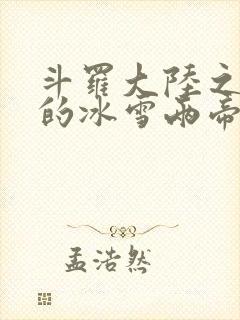 斗羅大陸之
的冰雪兩帝
孟浩然